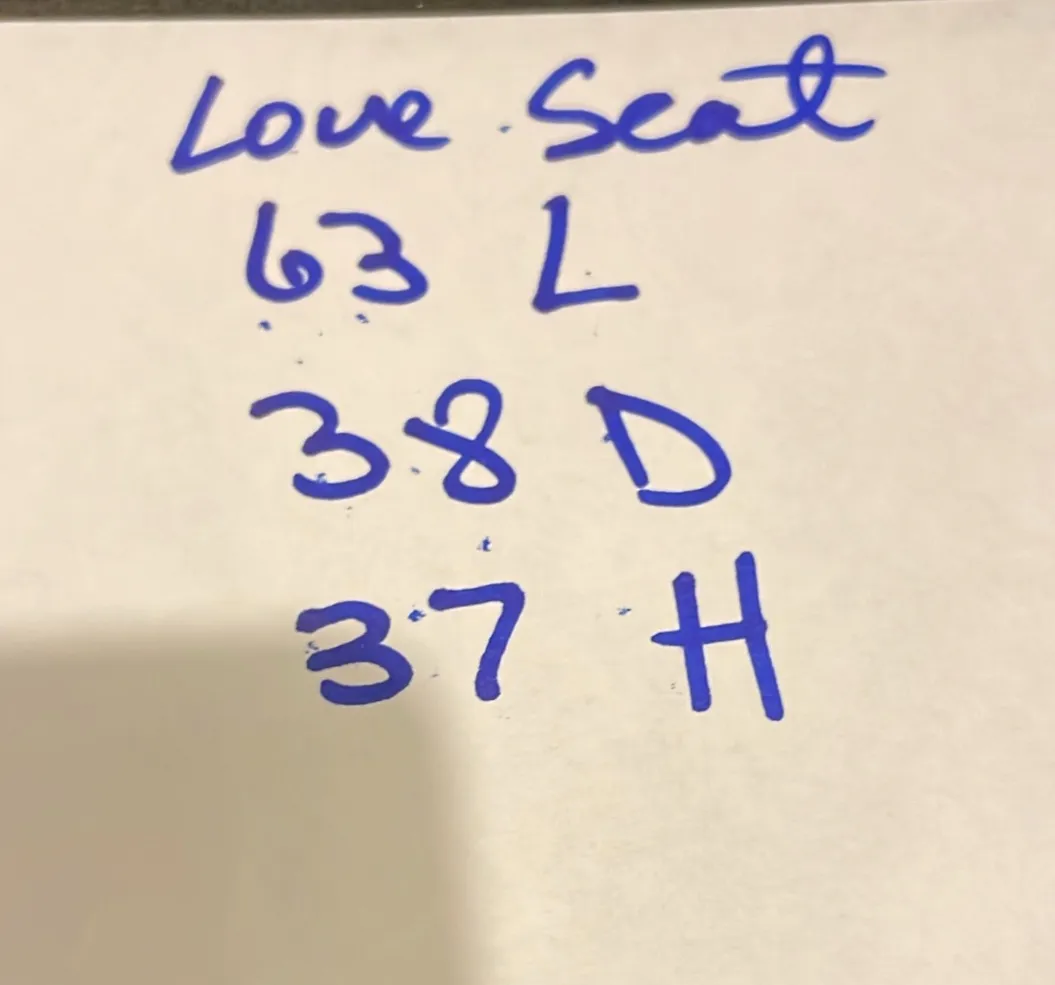 Love Seat
63 L
38 D
37 H